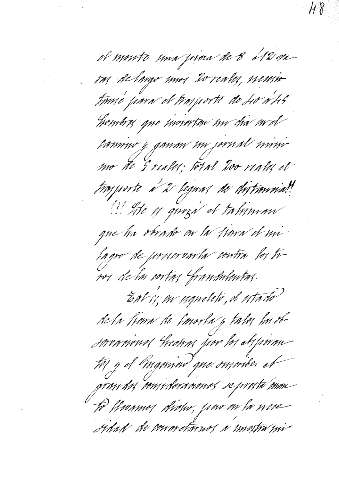 48
el monte una pieza de 8 á 12 va-
ras de largo unos 20 reales, necesi-
tanse para el trasporte de 40 á 45
hombres que invierten un dia en el
camino y ganan un jornal mini-
mo de 5 reales; total 200 reales el
trasporte á 2 leguas de distancia!!
!!! Este es quizá el talisman
que ha obrado en la sierra el mi-
lagro de preservarla contra los ti-
ros de las cortas fraudulentas.
Tal es, en esqueleto, el estado
de la sierra de Cazorla y tales las ob-
servaciones hechas por los
y el Ingeniero que suscribe el
grandes consideraciones se presta
lo llevamos dicho, pero en la nece-
sidad de concretarnos á nuestra mi-